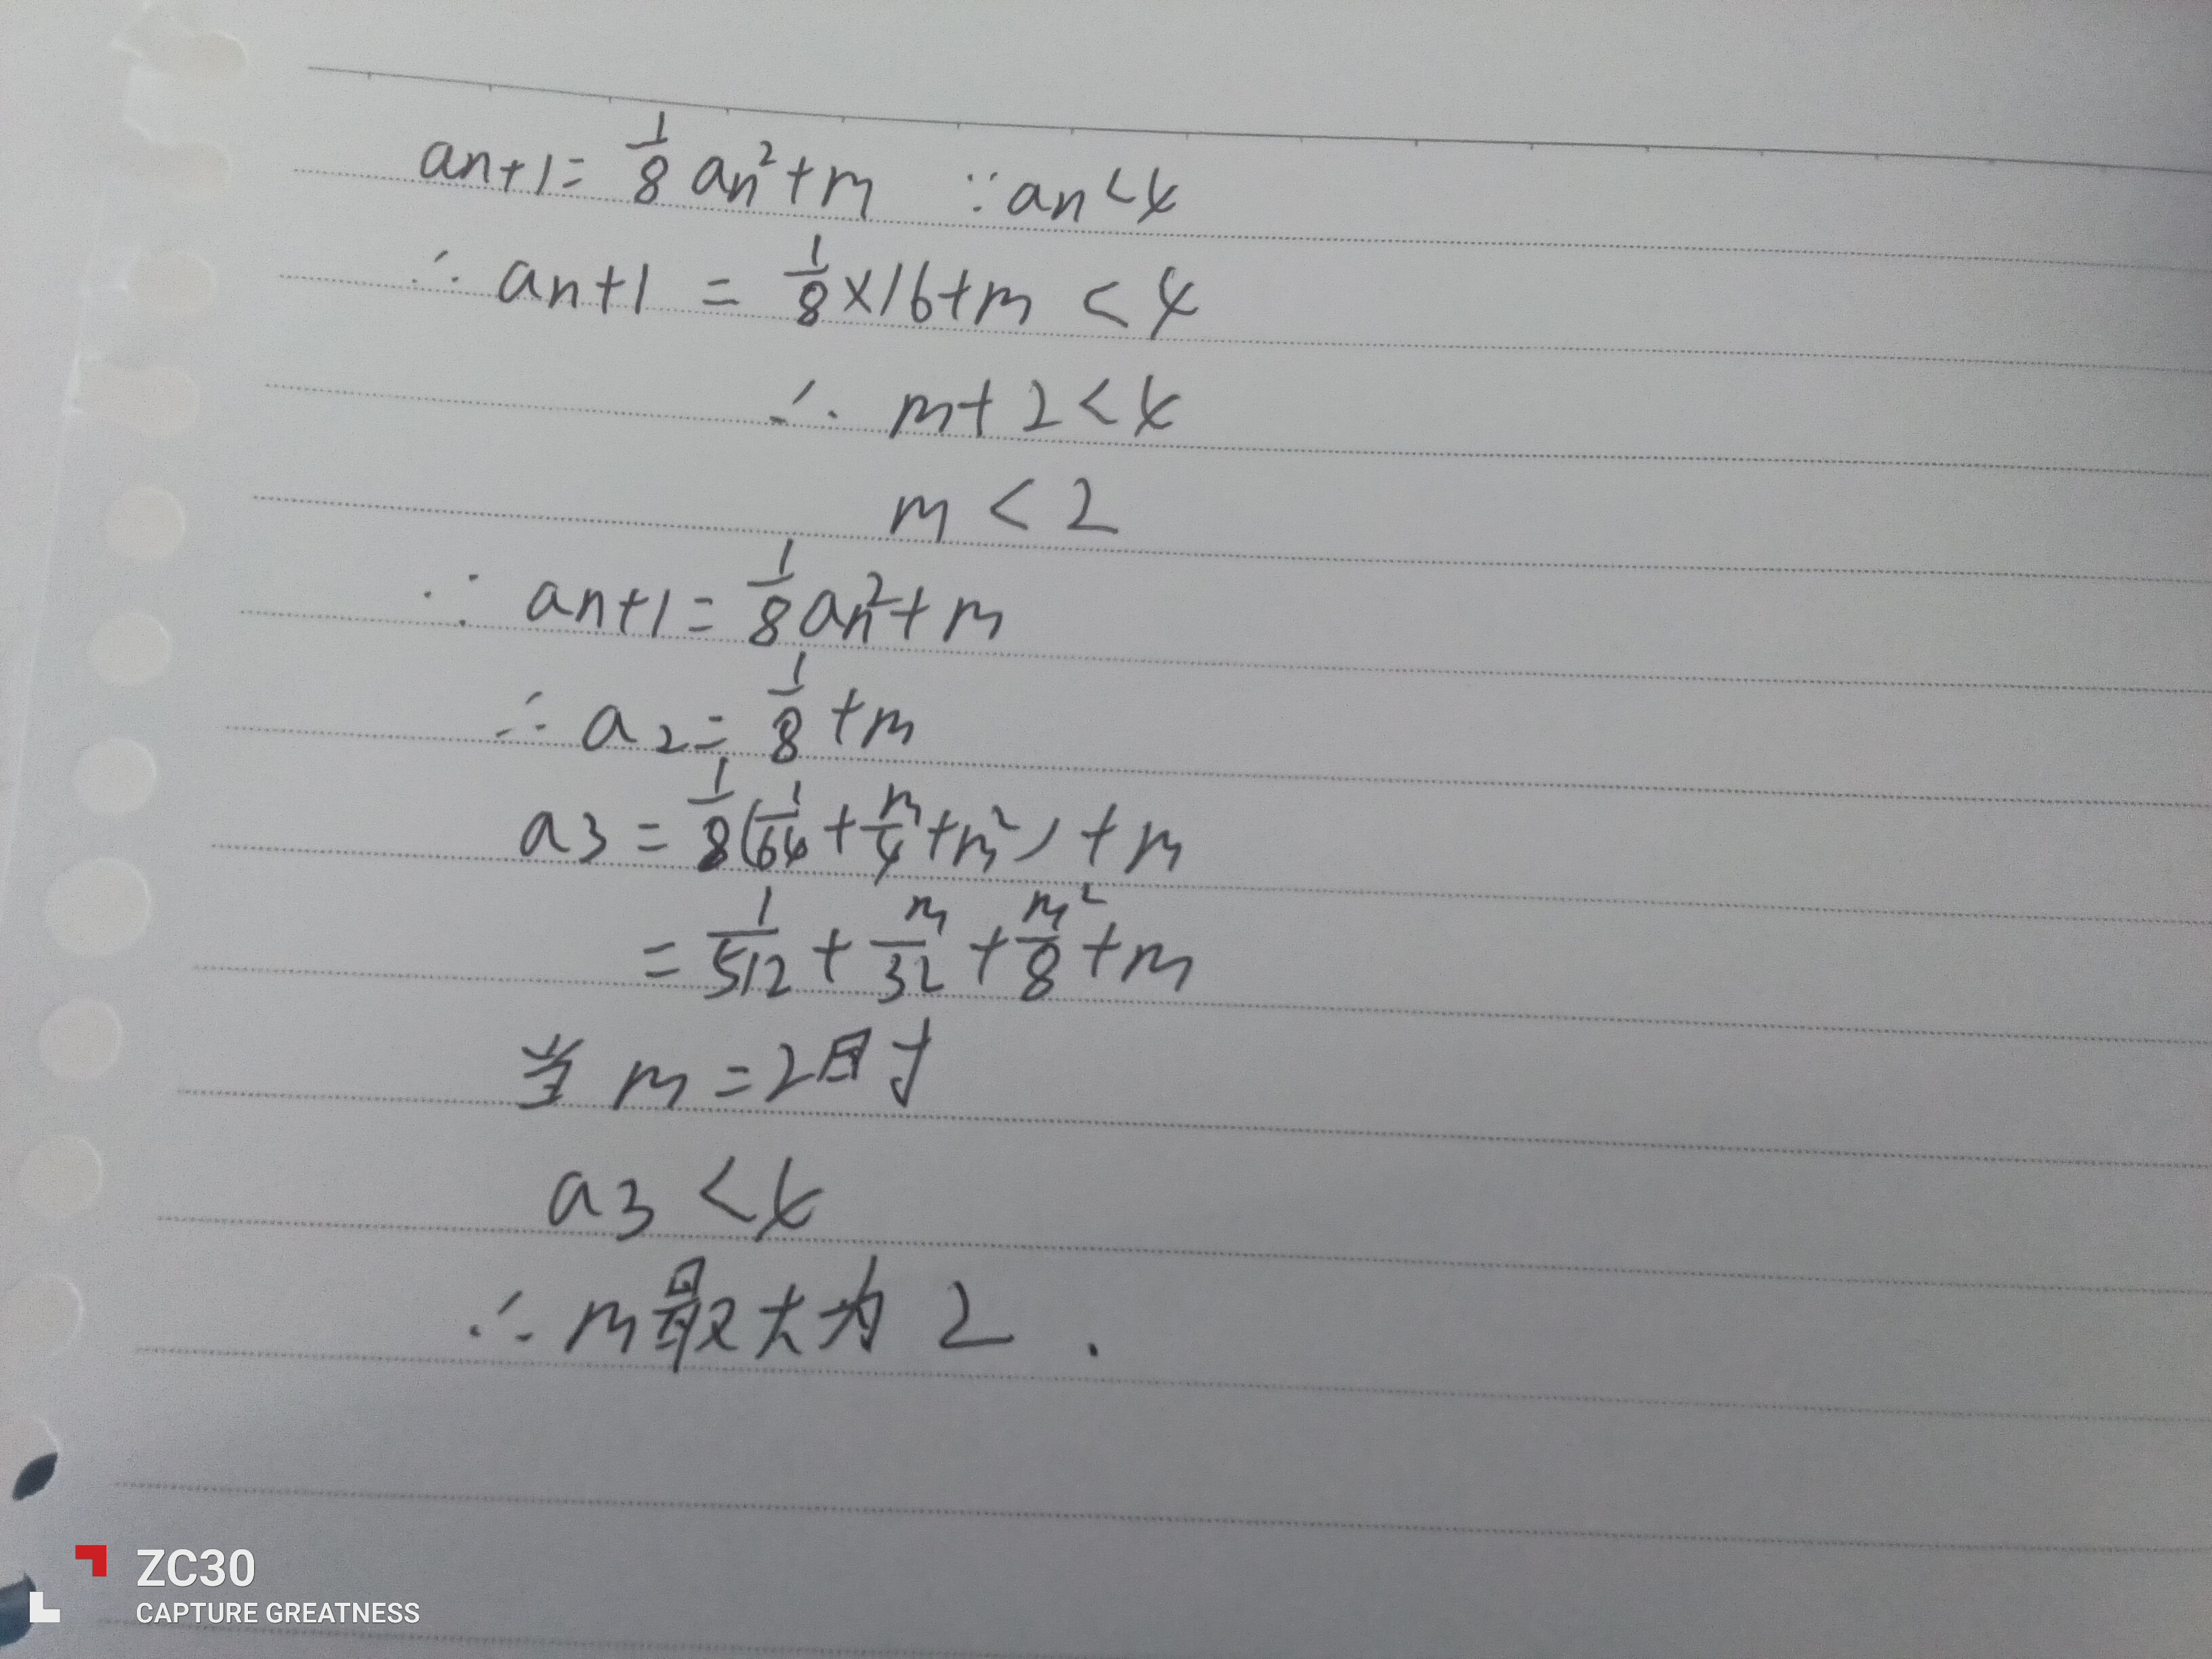 an+1 = 1/8 an² + m ∵ an < 4
∴ an+1 = 1/8 × 16 + m < 4
∴ m + 2 < 4
m < 2
∵ an+1 = 1/8 an² + m
∴ a2 = 1/8 + m
a3 = 1/8 (1/64 + m/4 + m²) + m
= 1/512 + m/32 + m²/8 + m
当 m = 2时
a3 < 4
∴ m最大为 2 .
ZC30
CAPTURE GREATNESS